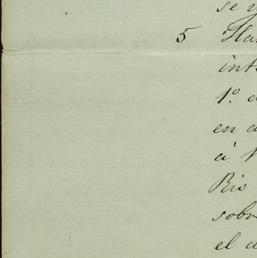 se
5 Ha
int
1.º
en a
á
Rio
sobr
el a